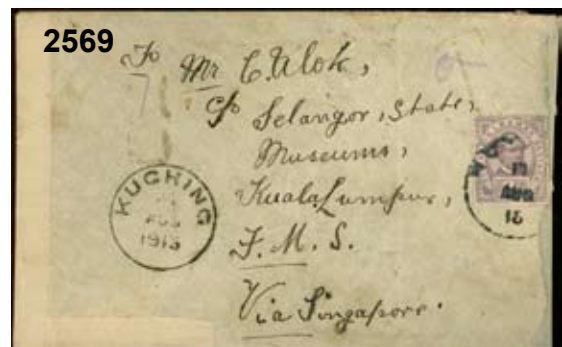 2569
To
Mr C. Ulok,
c/o
Selangor, State,
Museums,
Kuala Lumpur,
F. M. S.
Via Singapore.
KUCHING
AUG
1915
AUG
15